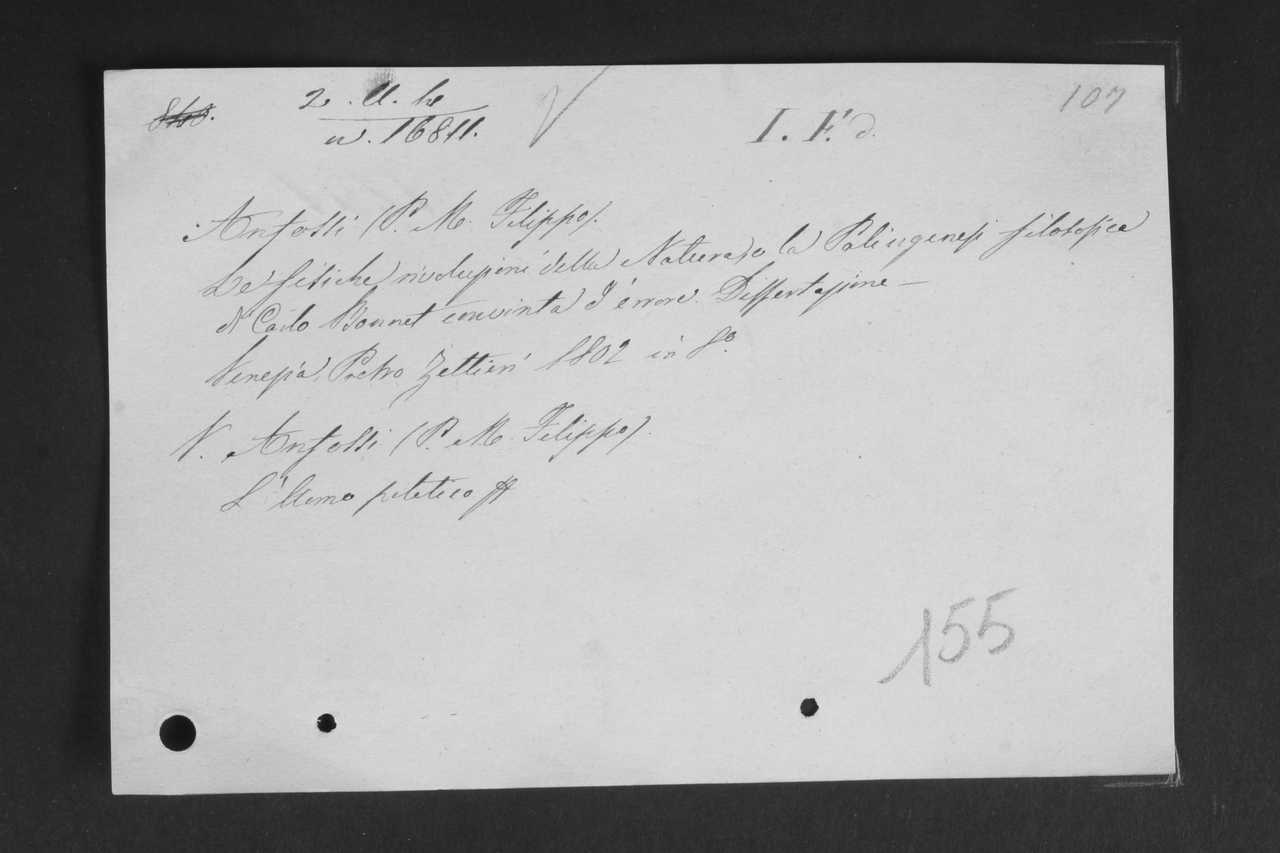 2. U. h
n. 16811.
I. F. d.
107
Anfossi (P. M. Filippo).
Le fisiche rivoluzioni della Natura, o la Palingenesi filosofica
di Carlo Bonnet convinta d'errore. Dissertazione —
Venezia, Pietro Zettieri 1802 in 8°.
V. Anfossi (P. M. Filippo).
L'
155